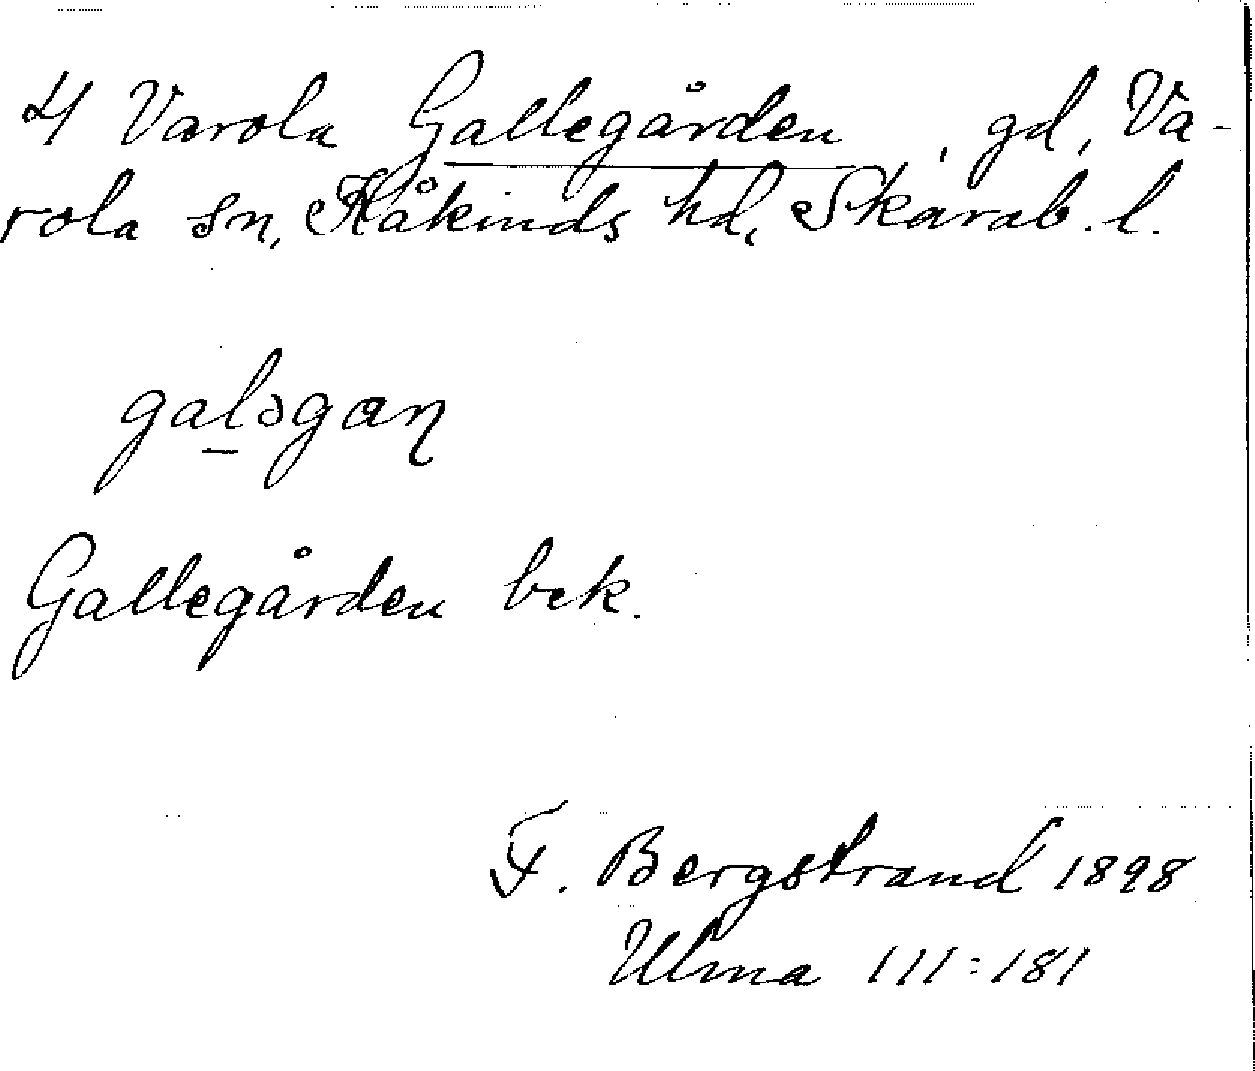 4 Varola Gallegården, gd, Va-
rola sn, Kåkinds hd, Skarab. l.
galəgaɳ
Gallegården bek.
F. Bergstrand 1898
Ulma 111:181